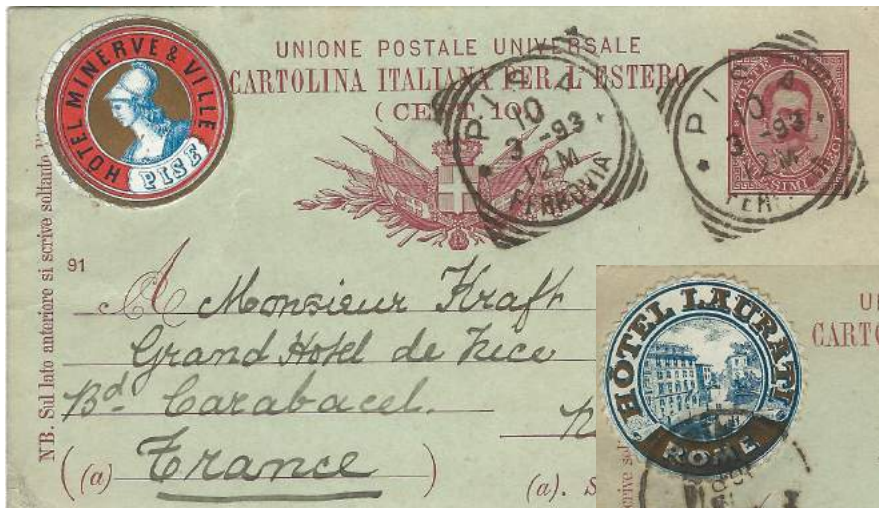 HÔTEL MINERVE & VILLE
PISE
UNIONE POSTALE UNIVERSALE
CARTOLINA ITALIANA PER L'ESTERO
(CENT. 10)
PISA
10
3 -93
12M
FERROVIA
PISA
10
3 -93
12M
FERR
NB. Sul lato anteriore si scrive soltanto
91
A Monsieur Kraft
Grand Hotel de Nice
Bd. Carabacel.
N
(a) France
(a). S
HÔTEL LAURATI
ROME
U
CARTO